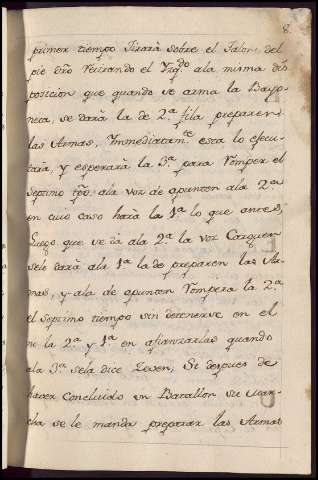 8.
primer tiempo Jirarà sobre el Talon, del
pie dr̃o Retirando el Yzq.do ala misma dis
posicion que quando se arma la Bayo
neta, se darà la de 2.ª fila preparen
las Armas, Ymmediatam.te esta lo efecu
tarà, y esperarà la 3.ª para Romper el
septimo tpõ. ala voz de apunten ala 2.ª
en cuio caso harà la 1.ª lo que antes,
Luego que se dà ala 2.ª la voz Carguen
sele darà ala 1.ª la de preparen las Ar
mas, y ala de apunten Rompera la 2.ª
el septimo tiempo sin detenerse en el
ni la 2.ª y 1.ª en afianzarlas quando
ala 3.ª sela dice Leven, Si despues de
haver Concluido un Batallon su mar
cha se le manda preparar las Armas